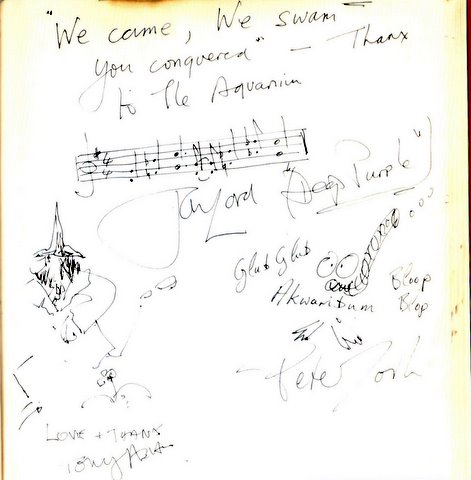 "We came, We swam –
you conquered" – Thanx
to the Aquarium
Jon Lord ("Deep Purple")
Glub Glub
Akwaribum
Bloop
Blop
Pete York
Love + Thanx
Tony